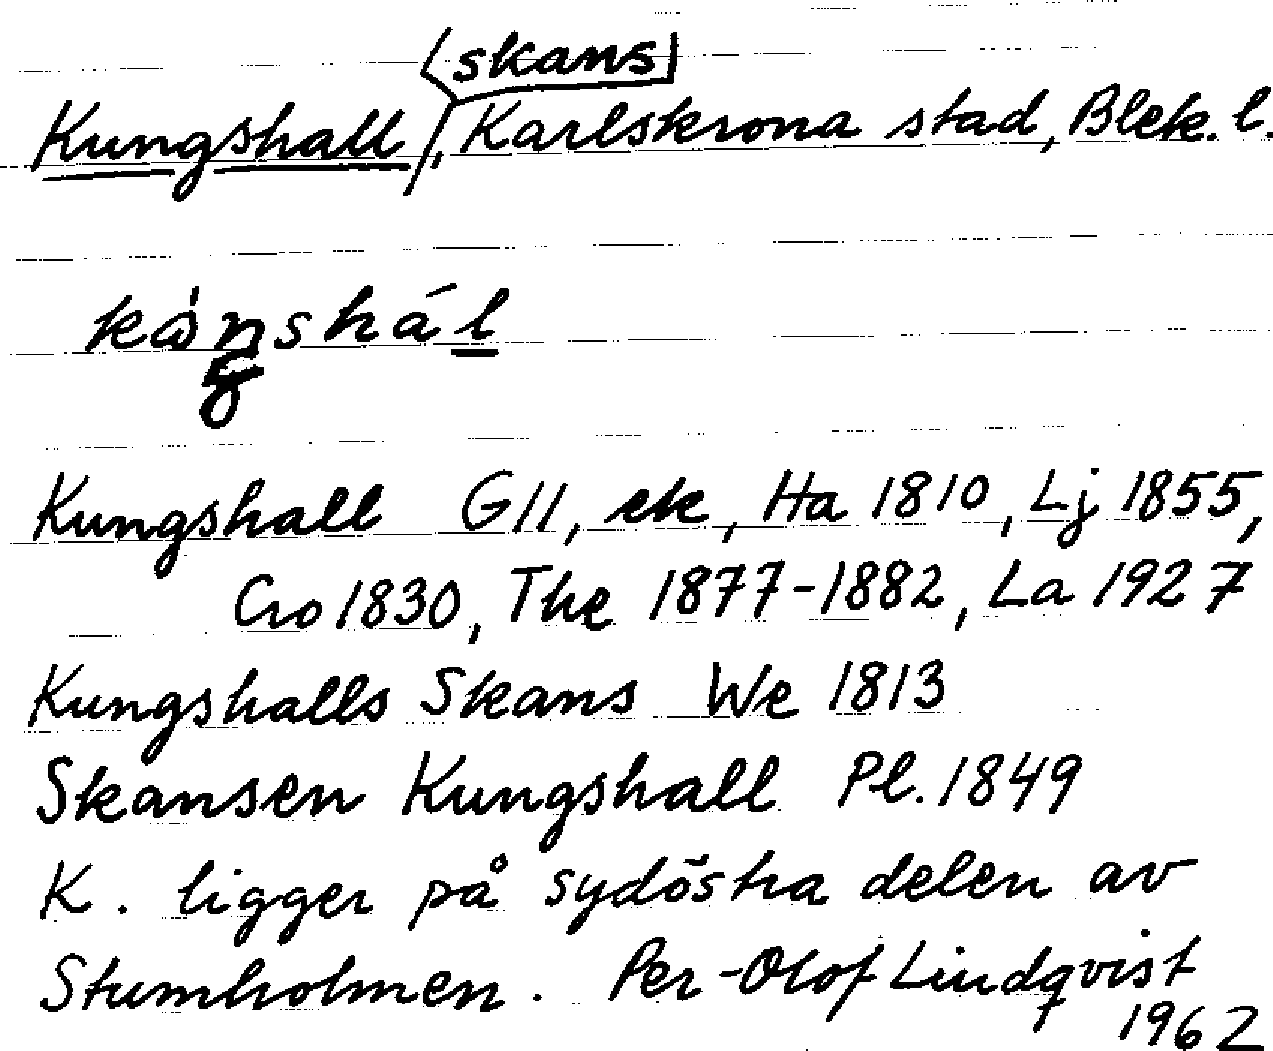 Kungshall, skans, Karlskrona stad, Blek. l.
Kungshall GII, ek, Ha 1810, Lj 1855,
Cro 1830, The 1877-1882, La 1927
Kungshalls Skans We 1813
Skansen Kungshall Pl. 1849
K. ligger på sydöstra delen av
Stumholmen. Per-Olof Lindqvist
1962